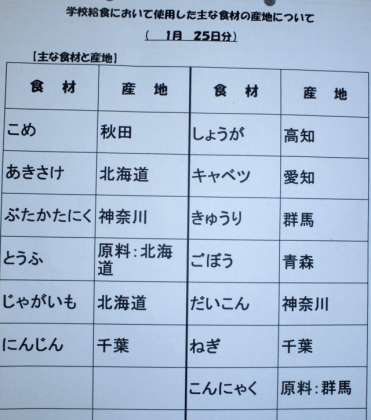 学校給食において使用した主な食材の産地について
( 1月 25日分)
【主な食材と産地】
食材 産地 食材 産地
こめ 秋田 しょうが 高知
あきさけ 北海道 キャベツ 愛知
ぶたかたにく 神奈川 きゅうり 群馬
とうふ 原料:北海道 ごぼう 青森
じゃがいも 北海道 だいこん 神奈川
にんじん 千葉 ねぎ 千葉
こんにゃく 原料:群馬